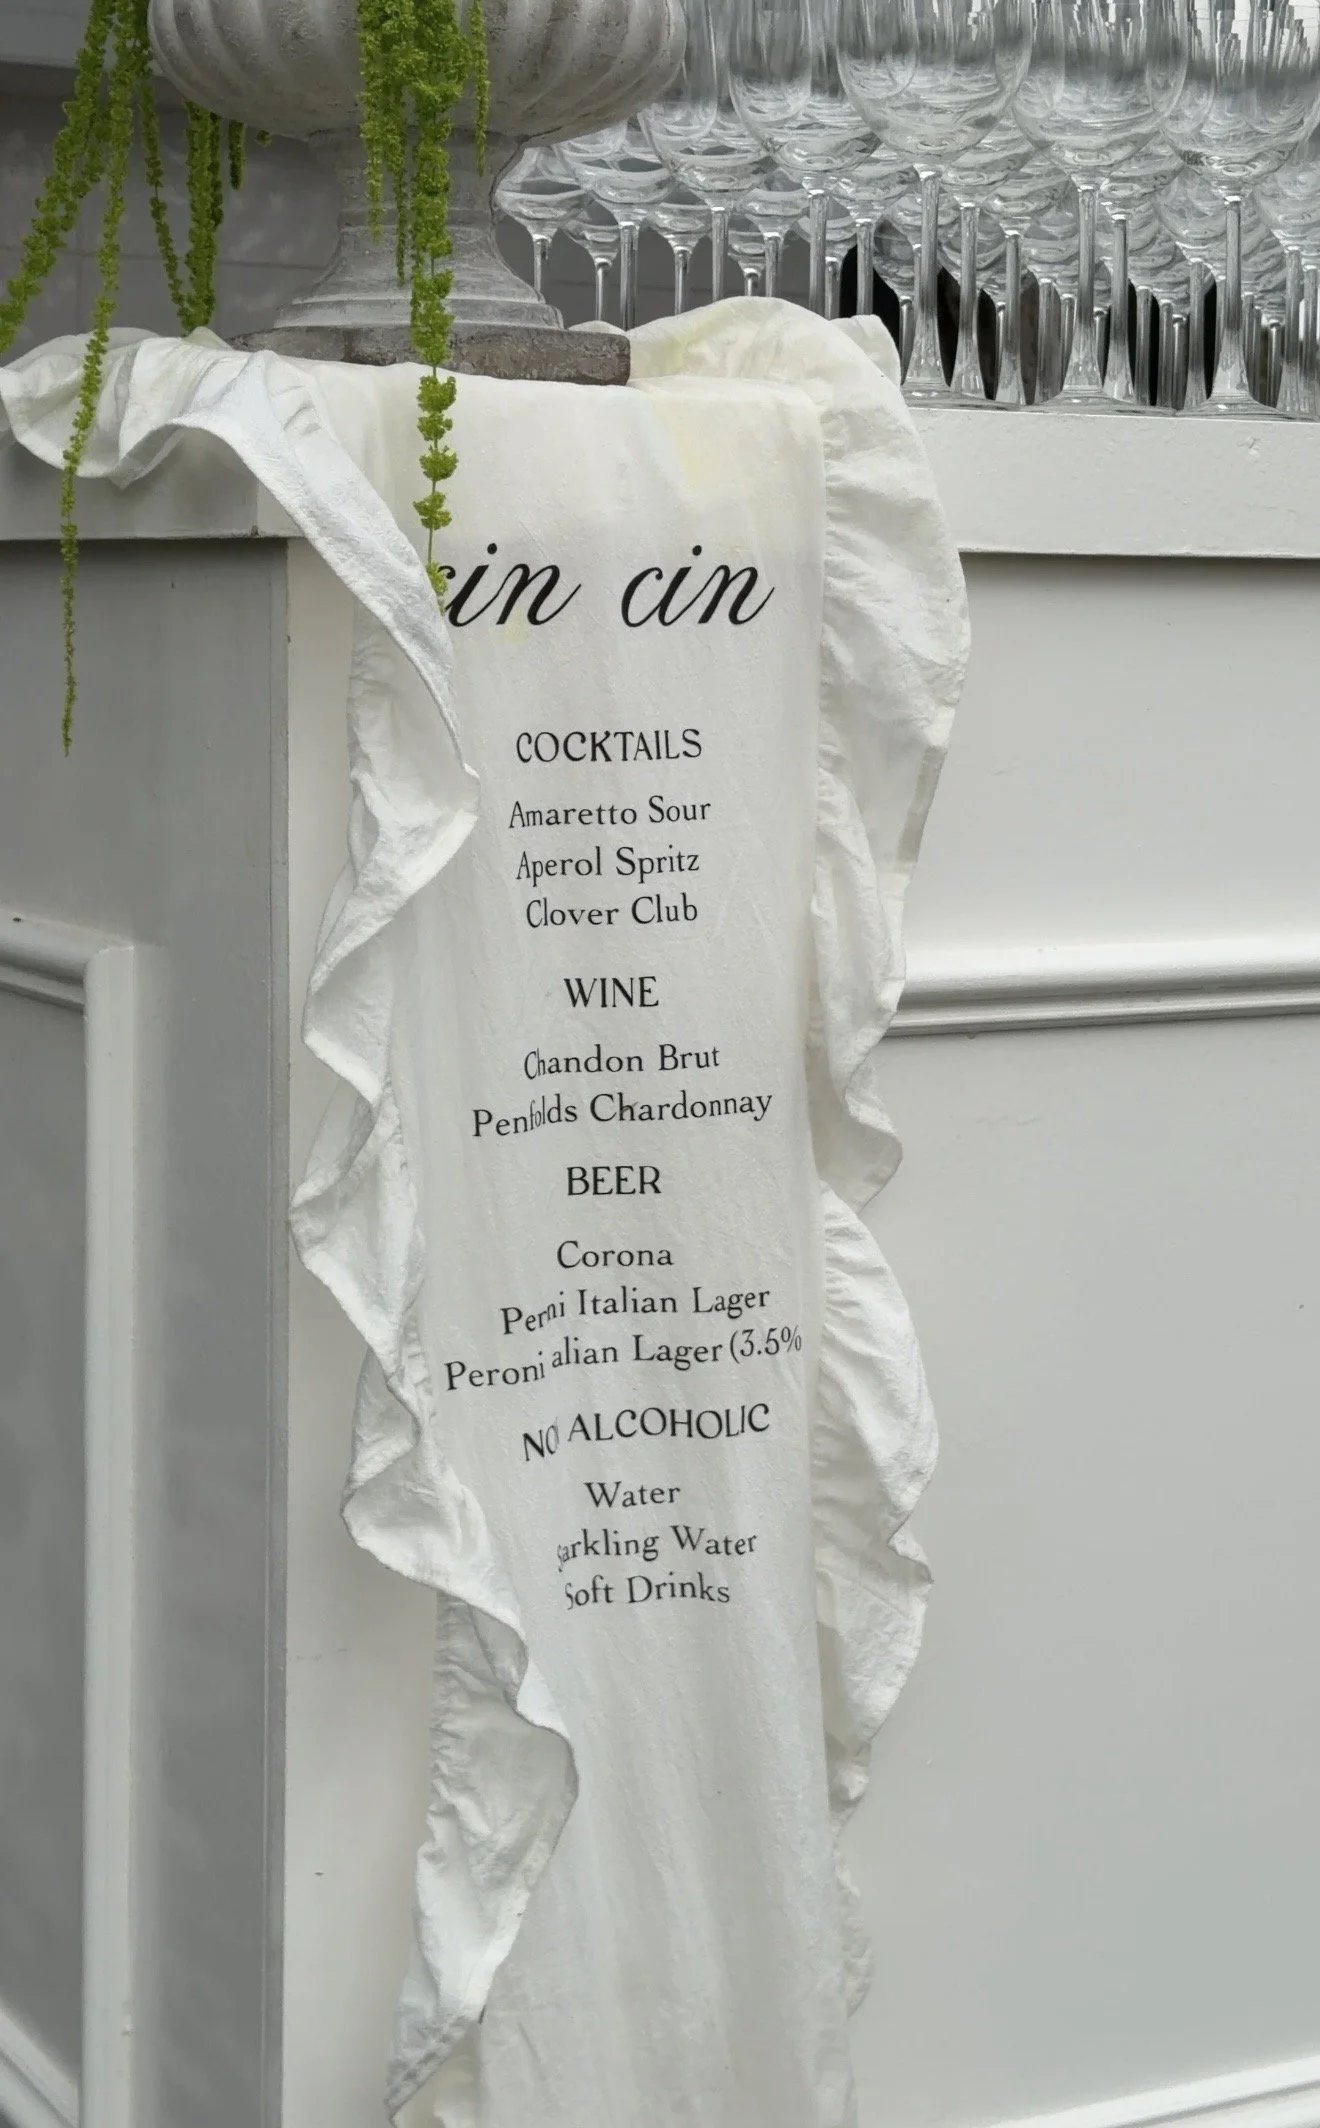 cin cin
COCKTAILS
Amaretto Sour
Aperol Spritz
Clover Club
WINE
Chandon Brut
Penfolds Chardonnay
BEER
Corona
Perni Italian Lager
Peroni alian Lager (3.5%
NO ALCOHOLIC
Water
arkling Water
Soft Drinks